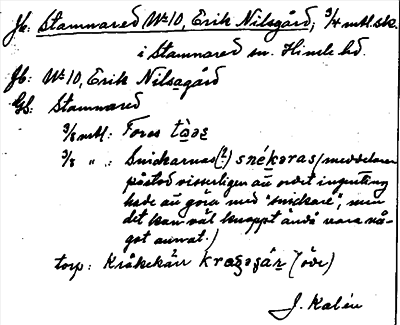 Jb: Stamnared No 10, Erik Nilsgård, 3/4 mtl. sk.
i Stamnared sn. Himle hd.
Jb: No 10, Erik Nilsagård
GS: Stamnared
3/8 mtl: Foras
3/8 " : Snickarnas(?) snékəras (meddelaren
påstod visserligen att ordet ingenting
hade att göra med "snickare", men
det kan väl knappt ändå vara nå-
got annat.)
torp: Kråkekärr (öde)
J. Kalén